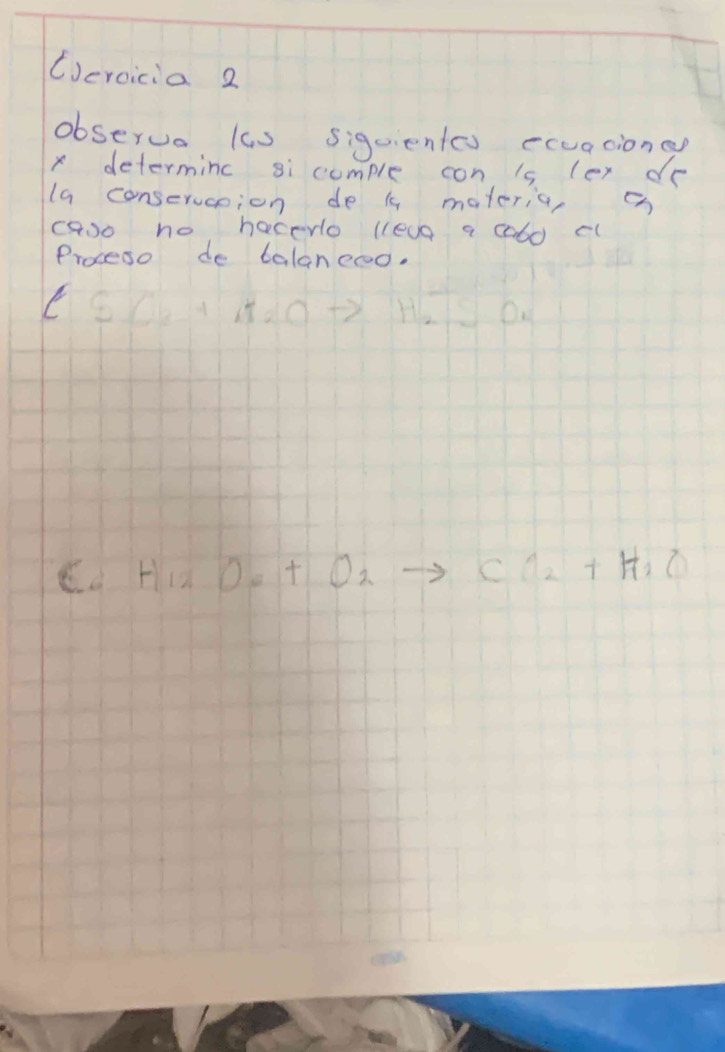 Ejercicia 2
Observa las siguientes ecuaciones
y determine si cumple con la ley de
la conservacion de la materia, en
caso no hacerlo lleva a cabo el
Proceso de balanceo.
SO₂ + H₂O → H₂SO₄
C₆ H₁₂ O₆ + O₂ → CO₂ + H₂O